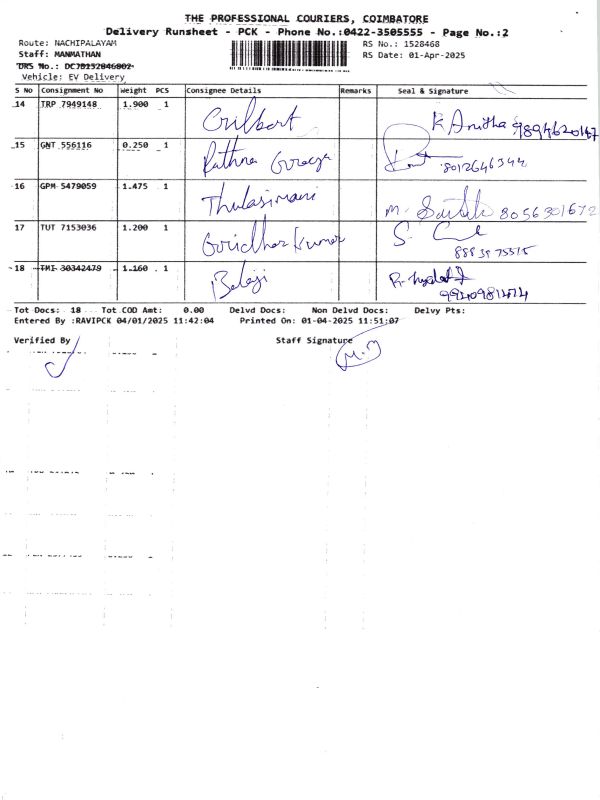 THE PROFESSIONAL COURIERS, COIMBATORE
Delivery Runsheet - PCK - Phone No.:0422-3505555 - Page No.:2
Route: NACHIPALAYAM RS No.: 1528468
Staff: MANMATHAN RS Date: 01-Apr-2025
DRS No.:
Vehicle: EV Delivery
S No Consignment No Weight PCS Consignee Details Remarks Seal & Signature
14 TRP 7949148 1.900 1 Gilbert K Anitha 9894620147
15 GNT 556116 0.250 1 Rathna 8012646344
16 GPM 5479059 1.475 1 Thulasimani M. 8056301672
17 TUT 7153036 1.200 1 Giridhar Kumar S.
8883975515
18 TMI 30342479 1.160 1 Balaji
Tot Docs: 18 Tot COD Amt: 0.00 Delvd Docs: Non Delvd Docs: Delvy Pts:
Entered By :RAVIPCK 04/01/2025 11:42:04 Printed On: 01-04-2025 11:51:07
Verified By Staff Signature